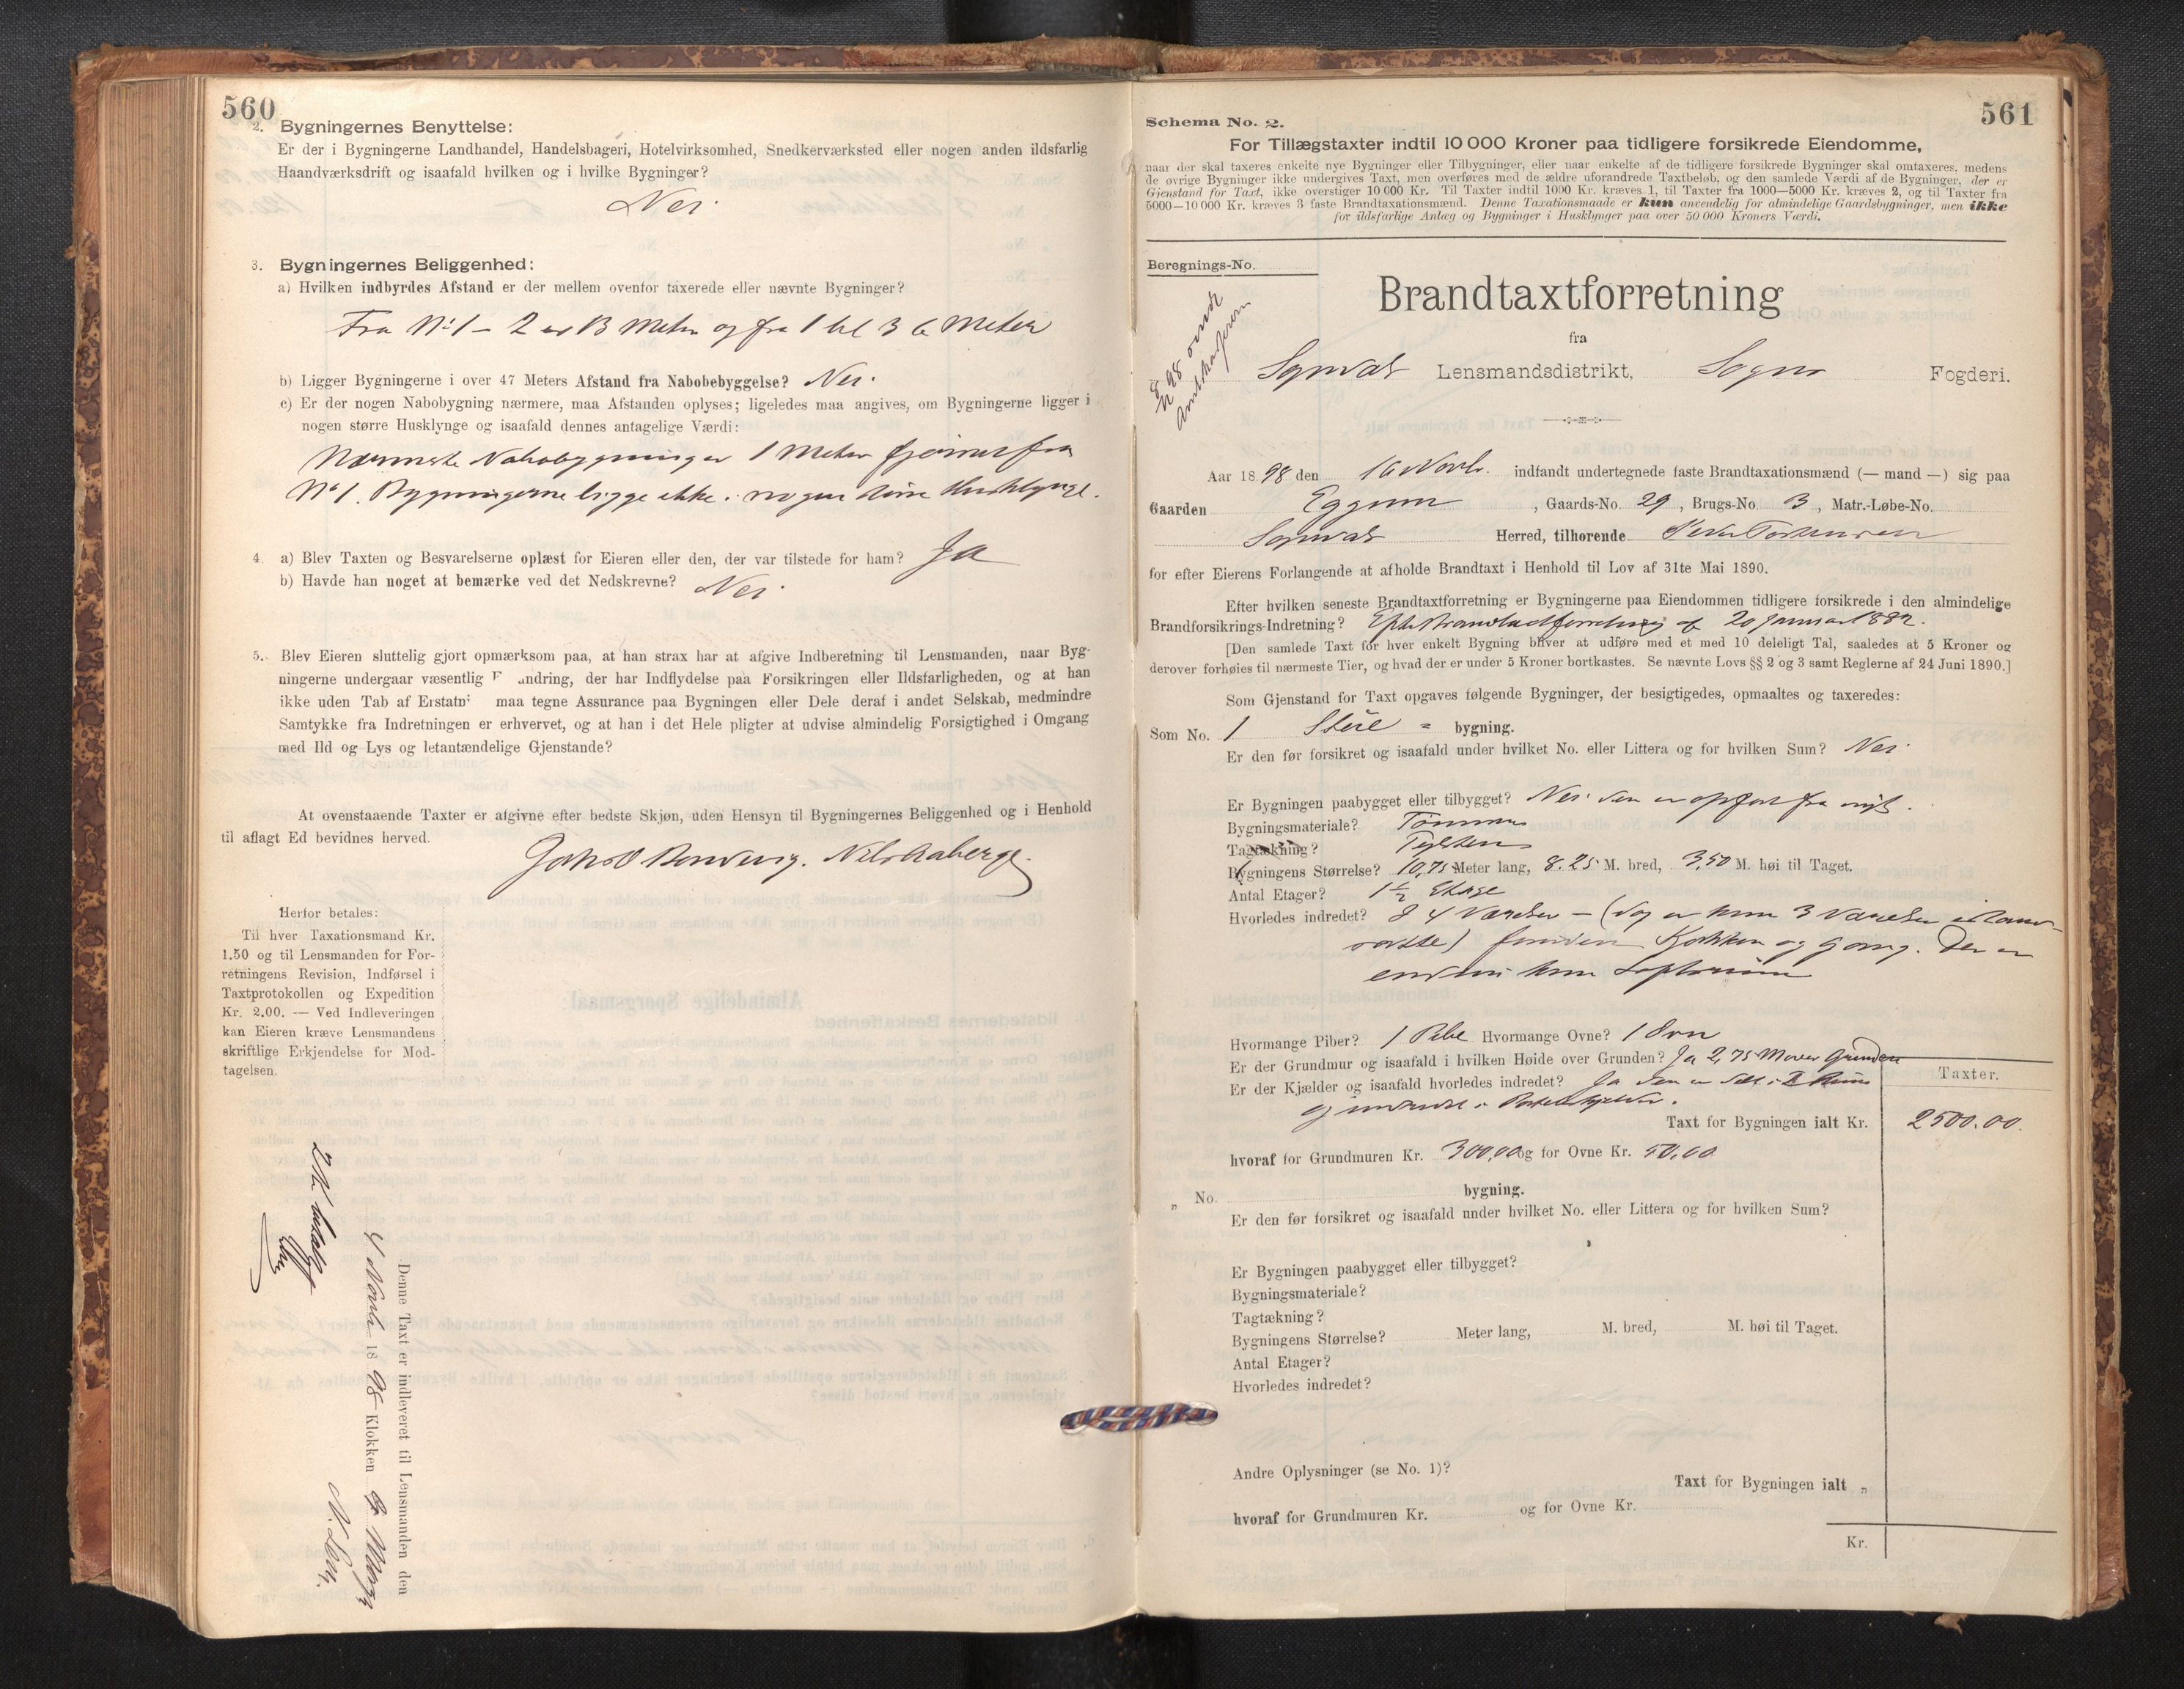 560
2. Bygningernes Benyttelse:
Er der i Bygningerne Landhandel, Handelsbageri, Hotelvirksomhed, Snedkerværksted eller nogen anden ildsfarlig
Haandværksdrift og isaafald hvilken og i hvilke Bygninger?
Nei.
3. Bygningernes Beliggenhed:
a) Hvilken indbyrdes Afstand er der mellem ovenfor taxerede eller nævnte Bygninger?
Fra No 1 - 2 er 13 Meter og fra 1 til 3 6 Meter
b) Ligger Bygningerne i over 47 Meters Afstand fra Nabobebyggelse? Nei.
c) Er der nogen Nabobygning nærmere, maa Afstanden oplyses; ligeledes maa angives, om Bygningerne ligger i
nogen større Husklynge og isaafald dennes antagelige Værdi:
Nærmeste Nabobygning er 1 Meter fjernet fra
No 1. Bygningerne ligge ikke i nogen større Husklynge.
4. a) Blev Taxten og Besvarelserne oplæst for Eieren eller den, der var tilstede for ham? Ja
b) Havde han noget at bemærke ved det Nedskrevne? Nei.
5. Blev Eieren sluttelig gjort opmærksom paa, at han strax har at afgive Indberetning til Lensmanden, naar Byg-
ningerne undergaar væsentlig F andring, der har Indflydelse paa Forsikringen eller Ildsfarligheden, og at han
ikke uden Tab af Erstatni maa tegne Assurance paa Bygningen eller Dele deraf i andet Selskab, medmindre
Samtykke fra Indretningen er erhvervet, og at han i det Hele pligter at udvise almindelig Forsigtighed i Omgang
med Ild og Lys og letantændelige Gjenstande?
At ovenstaaende Taxter er afgivne efter bedste Skjøn, uden Hensyn til Bygningernes Beliggenhed og i Henhold
til aflagt Ed bevidnes herved.
Nils Aaberge.
Herfor betales:
Til hver Taxationsmand Kr.
1.50 og til Lensmanden for For-
retningens Revision, Indførsel i
Taxtprotokollen og Expedition
Kr. 2.00. — Ved Indleveringen
kan Eieren kræve Lensmandens
skriftlige Erkjendelse for Mod-
tagelsen.
Denne Taxt er indleveret til Lensmanden den
4 Novbr 1898 Klokken
561
Schema No. 2.
For Tillægstaxter indtil 10 000 Kroner paa tidligere forsikrede Eiendomme,
naar der skal taxeres enkelte nye Bygninger eller Tilbygninger, eller naar enkelte af de tidligere forsikrede Bygninger skal omtaxeres, medens
de øvrige Bygninger ikke undergives Taxt, men overføres med de ældre uforandrede Taxtbeløb, og den samlede Værdi af de Bygninger, der er
Gjenstand for Taxt, ikke overstiger 10 000 Kr. Til Taxter indtil 1000 Kr. kræves 1, til Taxter fra 1000—5000 Kr. kræves 2, og til Taxter fra
5000—10 000 Kr. kræves 3 faste Brandtaxationsmænd. Denne Taxationsmaade er kun anvendelig for almindelige Gaardsbygninger, men ikke
for ildsfarlige Anlæg og Bygninger i Husklynger paa over 50 000 Kroners Værdi.
Beregnings-No.
Brandtaxtforretning
fra
Sogndals Lensmandsdistrikt, Sogns Fogderi.
Aar 1898 den 16 Novbr. indfandt undertegnede faste Brandtaxationsmænd (— mand —) sig paa
Gaarden Eggum, Gaards-No. 29, Brugs-No. 3, Matr.-Løbe-No.
Sogndals Herred, tilhørende
for efter Eierens Forlangende at afholde Brandtaxt i Henhold til Lov af 31te Mai 1890.
Efter hvilken seneste Brandtaxtforretning er Bygningerne paa Eiendommen tidligere forsikrede i den almindelige
Brandforsikrings-Indretning? Efter Brandtaxtforretning af 20 Januar 1882.
[Den samlede Taxt for hver enkelt Bygning bliver at udføre med et med 10 deleligt Tal, saaledes at 5 Kroner og
derover forhøies til nærmeste Tier, og hvad der er under 5 Kroner bortkastes. Se nævnte Lovs §§ 2 og 3 samt Reglerne af 24 Juni 1890.]
Som Gjenstand for Taxt opgaves følgende Bygninger, der besigtigedes, opmaaltes og taxeredes:
Som No. 1 Stue = bygning.
Er den før forsikret og isaafald under hvilket No. eller Littera og for hvilken Sum? Nei.
Er Bygningen paabygget eller tilbygget? Nei den er opført fra nyt.
Bygningsmateriale? Tømmer
Tagtækning?
Bygningens Størrelse? 10,75 Meter lang, 8.25 M. bred, 3,50 M. høi til Taget.
Antal Etager? 1 1/2 Etage
Hvorledes indredet? 4 Værelser — (dog er kun 3 Værelser
) foruden Kjøkken og Gang. Der er
endnu kun
Hvormange Piber? 1 Pibe Hvormange Ovne? 1 Ovn
Er der Grundmur og isaafald i hvilken Høide over Grunden? Ja 2,75 M over Grunden
Er der Kjælder og isaafald hvorledes indredet? Ja den er delt i 2 Rum
og
Taxter.
Taxt for Bygningen ialt Kr. 2500.00.
hvoraf for Grundmuren Kr. 300,00 og for Ovne Kr. 50.00
„ No. bygning.
Er den før forsikret og isaafald under hvilket No. eller Littera og for hvilken Sum?
Er Bygningen paabygget eller tilbygget?
Bygningsmateriale?
Tagtækning?
Bygningens Størrelse? Meter lang, M. bred, M. høi til Taget.
Antal Etager?
Hvorledes indredet?
Andre Oplysninger (se No. 1)?
Taxt for Bygningen ialt „
hvoraf for Grundmuren Kr. og for Ovne Kr.
Kr.